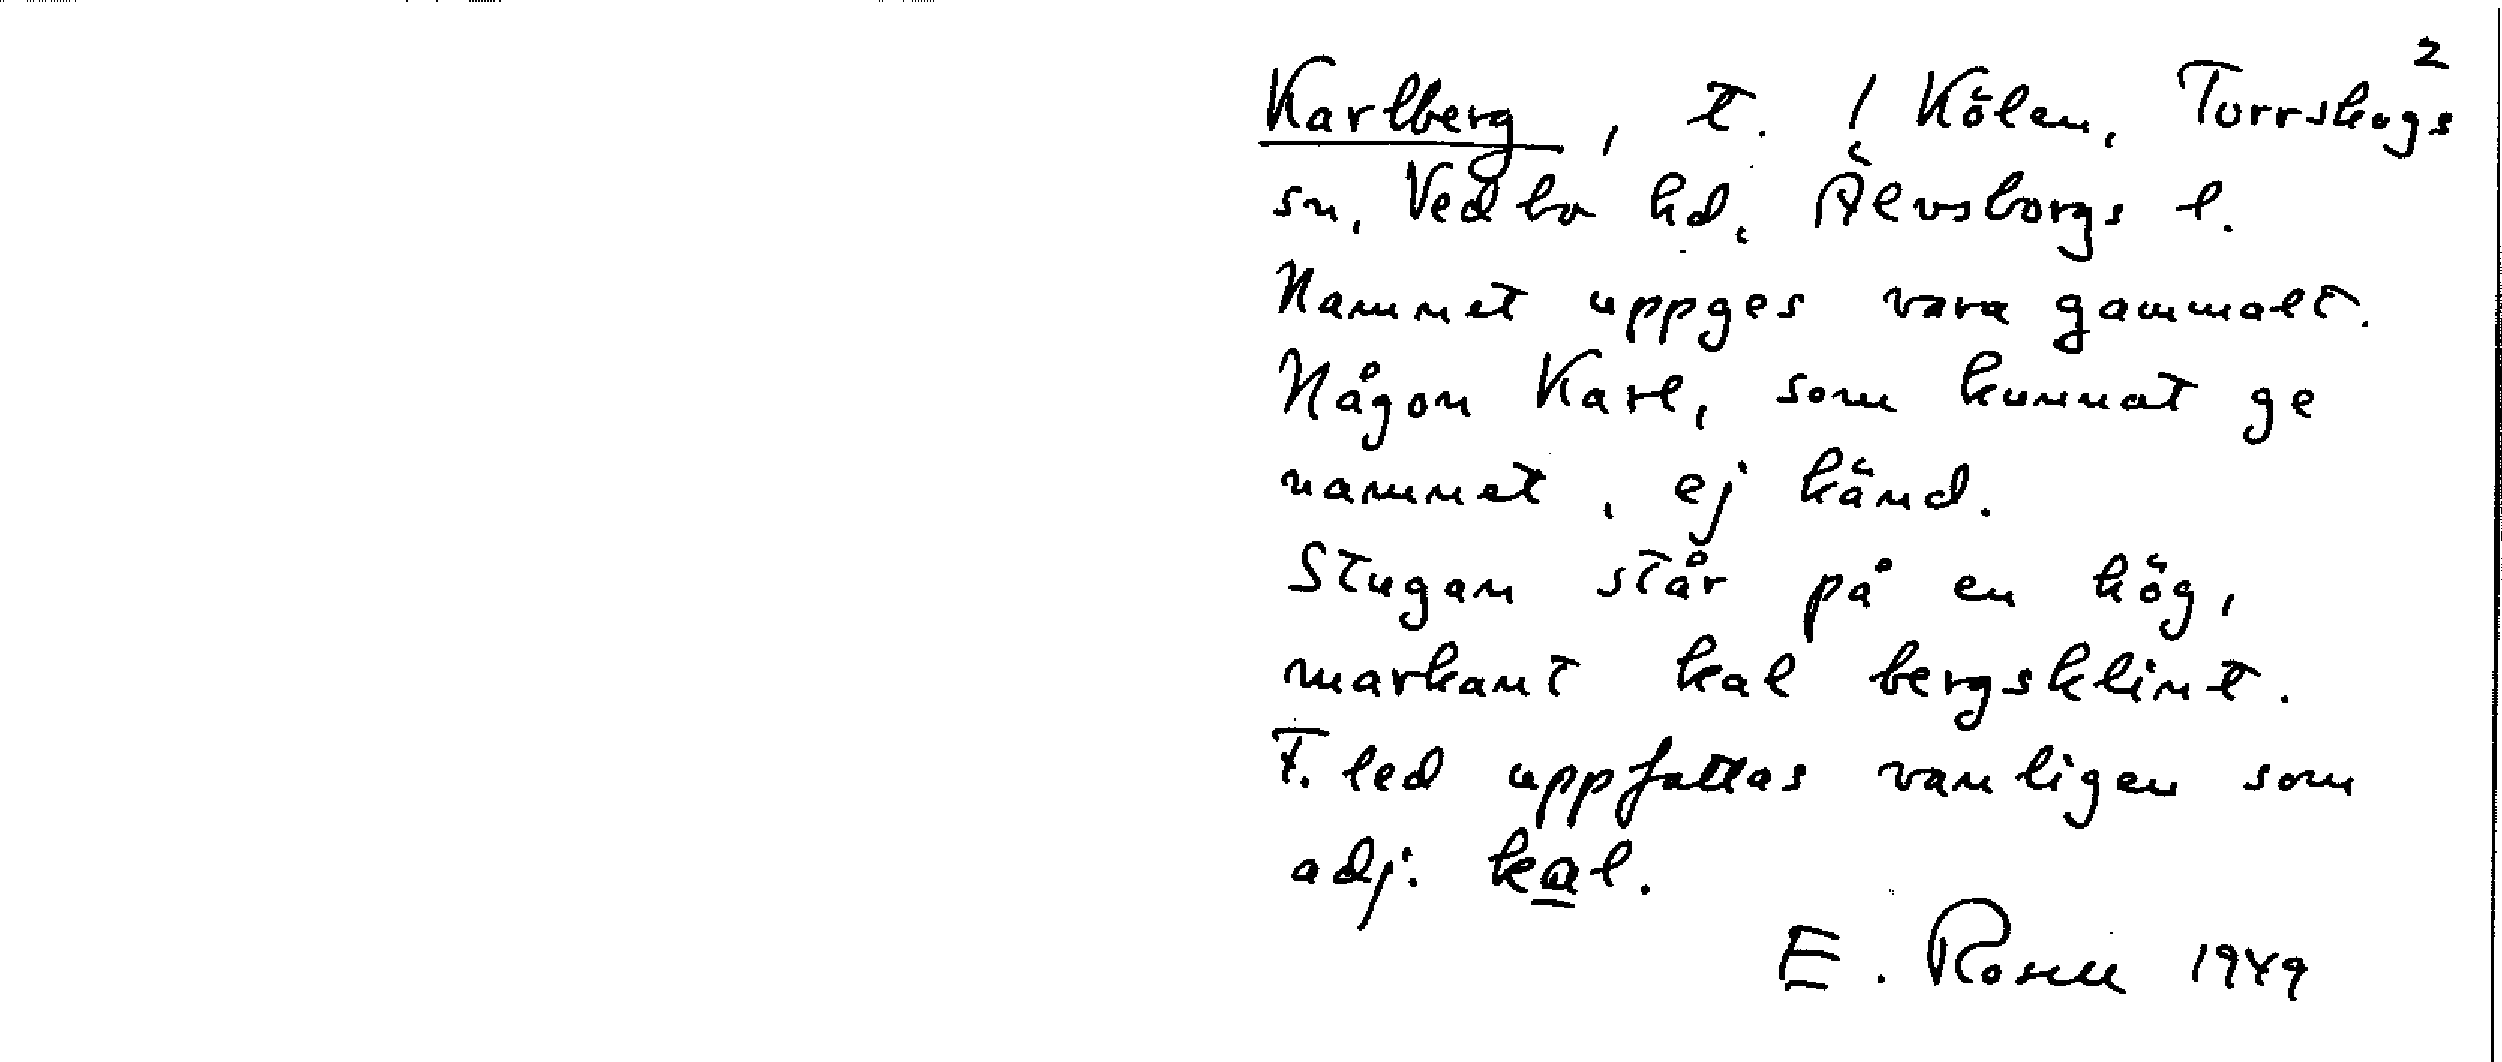 2
Karlberg, t. / Kölen, Torrskogs
sn, Vedbo hd, Älvsborgs l.
Namnet uppges vara gammalt.
Någon Karl, som kunnat ge
namnet, ej känd.
Stugan står på en hög,
markant kal bergsklint.
F. led uppfattas vanligen som
adj. kal.
E. Rosell 1949